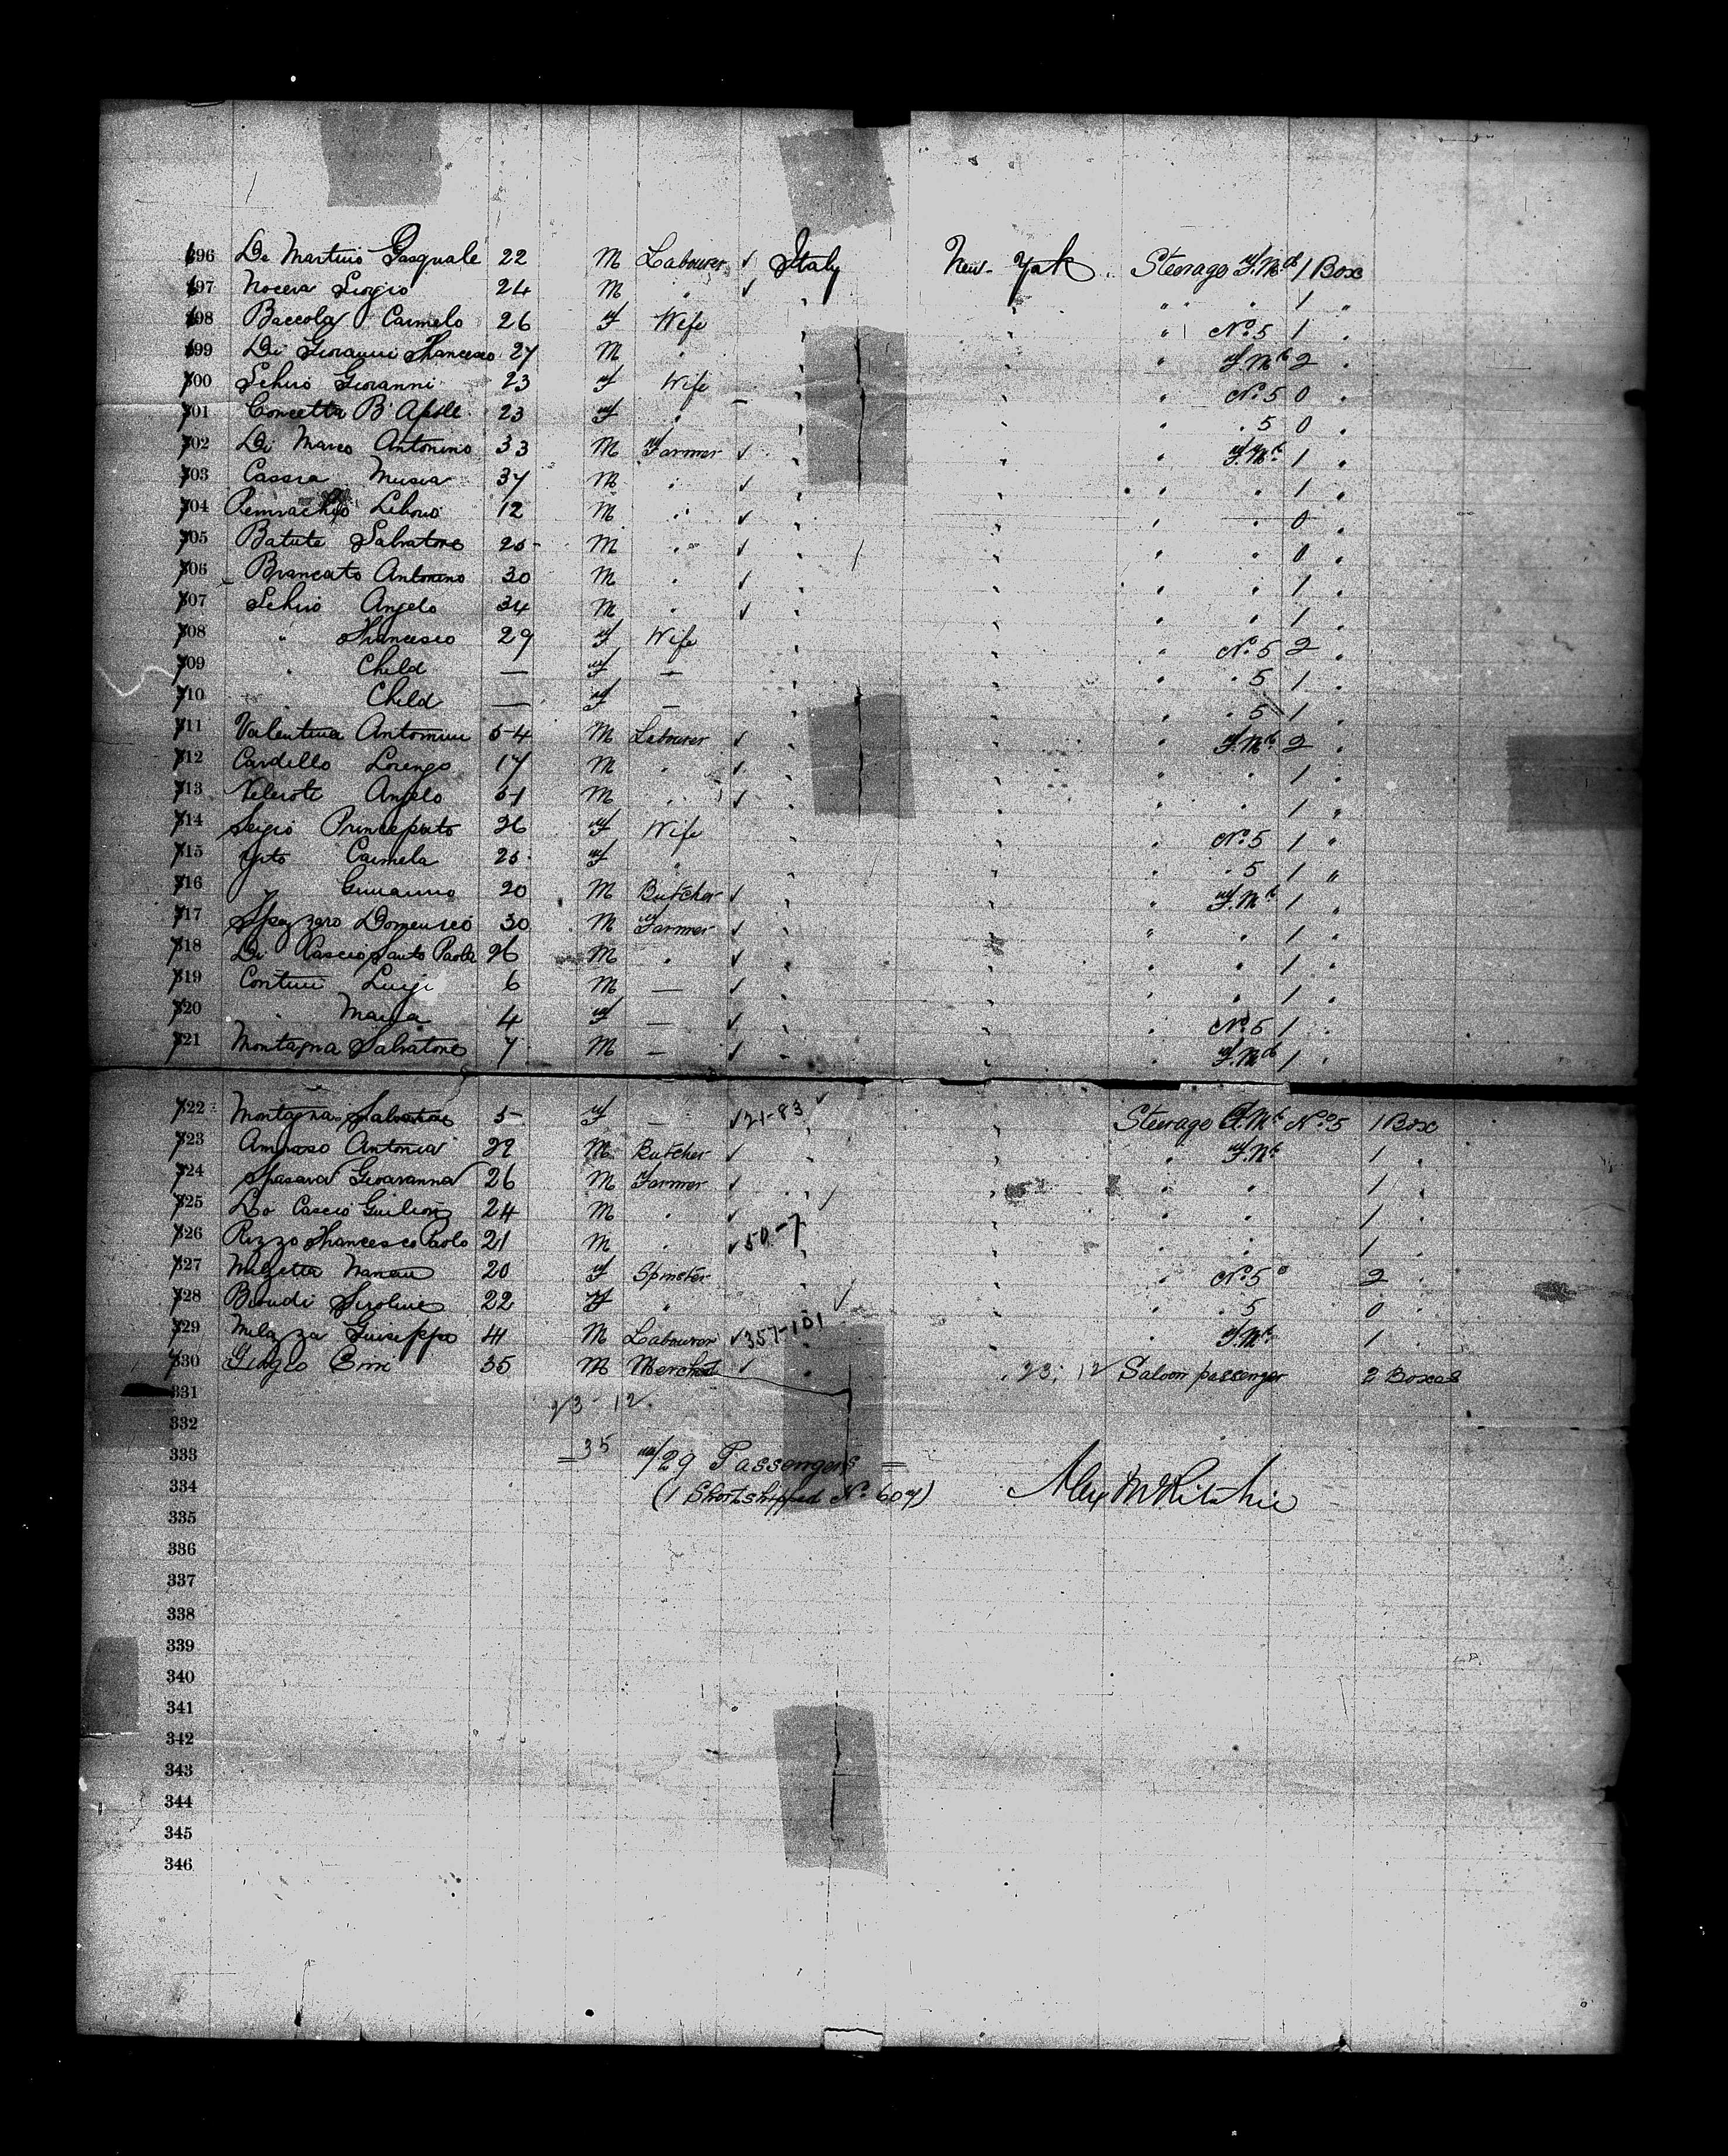 696 De Martino Pasquale 22 M Labourer ✓ Italy New-York Steerage F.Mt 1 Box
697 Nocera Sergio 24 M " ✓ " " " " 1 "
698 Baccola Carmelo 26 F Wife " " " No 5 1 "
699 Di Giovanni Francesco 27 M " " " " F.Mt 2 "
700 Schiro Giovanni 23 F Wife " " " No 5 0 "
701 Concetta B 23 F " " " " " 5 0 "
702 Di Marco Antonino 33 M Farmer ✓ " " " F.Mt 1 "
703 Cassra Musia 37 M " ✓ " " " " 1 "
704 Liborio 12 M " ✓ " " " " 0 "
705 Batute Salvatore 25 M " ✓ " " " " 0 "
706 Brancato Antonino 30 M " ✓ " " " " 1 "
707 Schiro Angelo 34 M " ✓ " " " " 1 "
708 " Francesco 29 F Wife " " " No 5 2 "
709 " Child — F — " " " " 5 1 "
710 " Child — F — " " " " 5 1 "
711 Valentina Antonini 54 M Labourer ✓ " " " F.Mt 2 "
712 Cardello Lorenzo 17 M " ✓ " " " " 1 "
713 Angelo 51 M " ✓ " " " " 1 "
714 Sergio Principato 26 F Wife " " " No 5 1 "
715 Carmela 25 F " " " " " 5 1 "
716 20 M Butcher ✓ " " " F.Mt 1 "
717 Spazzaro Domenico 30 M Farmer ✓ " " " " 1 "
718 Di Cascio Santo Paola 26 M " ✓ " " " " 1 "
719 Contini Luigi 6 M — ✓ " " " " 1 "
720 " Maria 4 F — ✓ " " " No 5 1 "
721 Montagna Salvatore 7 M — ✓ " " " F.Mt 1 "
722 Montagna Salvatore 5 F — ✓ 21-83 Steerage F.Mt No 5 1 Box
723 Amoroso Antonia 22 M Butcher ✓ " " " F.Mt 1 "
724 Spasara Giovanna 26 M Farmer ✓ " " " " 1 "
725 Lo Cascio 24 M " ✓ " " " " 1 "
726 Rizzo Francesco Paolo 21 M " ✓ 50-7 " " " " 1 "
727 20 F Spinster " " " No 5 2 "
728 Biondi 22 F " " " " " 5 0 "
729 Milazza Guiseppe 41 M Labourer ✓ 357-101 " " " F.Mt 1 "
730 35 M Merchant ✓ " 23; 12 Saloon passenger 2 Boxes
331 23-12
332
333 = 35 729 Passengers =
334 (1 Shortshipped No 607) Alex McRitchie
335
336
337
338
339
340
341
342
343
344
345
346